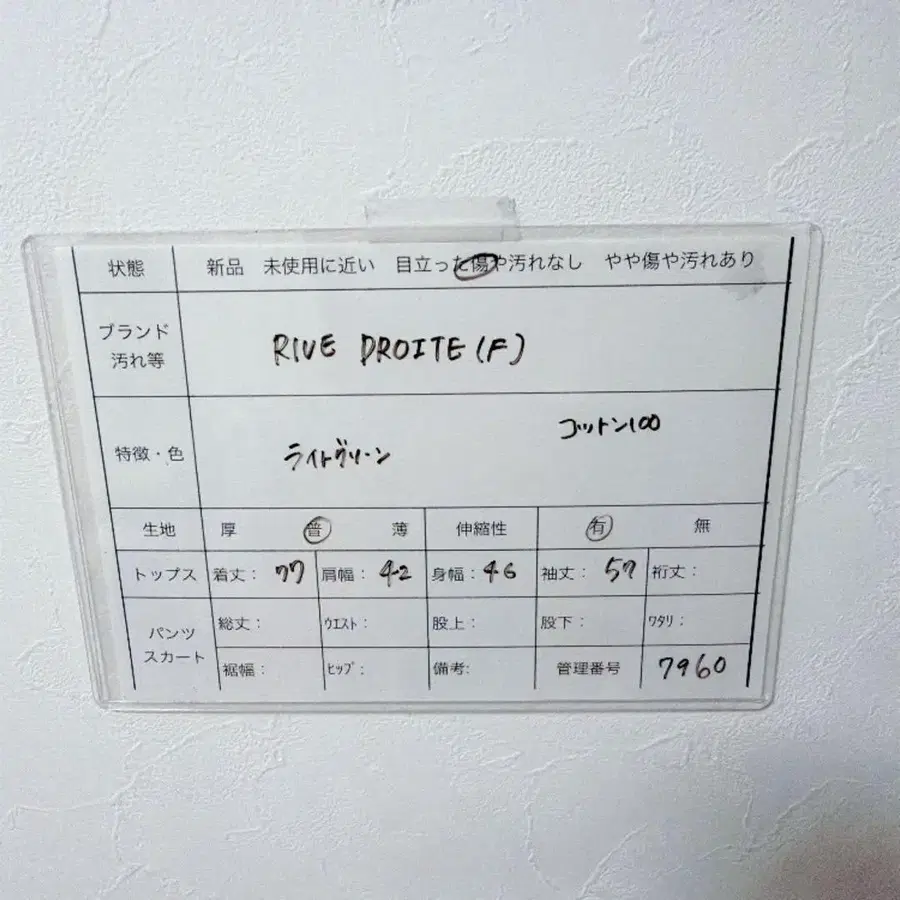 状態 新品 未使用に近い 目立った傷や汚れなし やや傷や汚れあり
ブランド
汚れ等
RIVE DROITE (F)
特徴・色
コットン100
ライトグリーン
生地 厚 普 薄 伸縮性 有 無
トップス 着丈: 77 肩幅: 42 身幅: 46 袖丈: 57 裄丈:
パンツ
スカート
総丈: ウエスト: 股上: 股下: ワタリ:
裾幅: ヒップ: 備考: 管理番号 7960